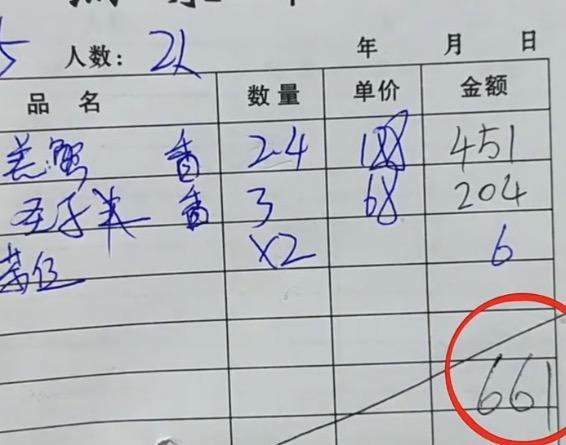 人数: 2人 年 月 日
品名 数量 单价 金额
羔蟹 香 2.4 188 451
香 3 68 204
茶位 x2 6
661